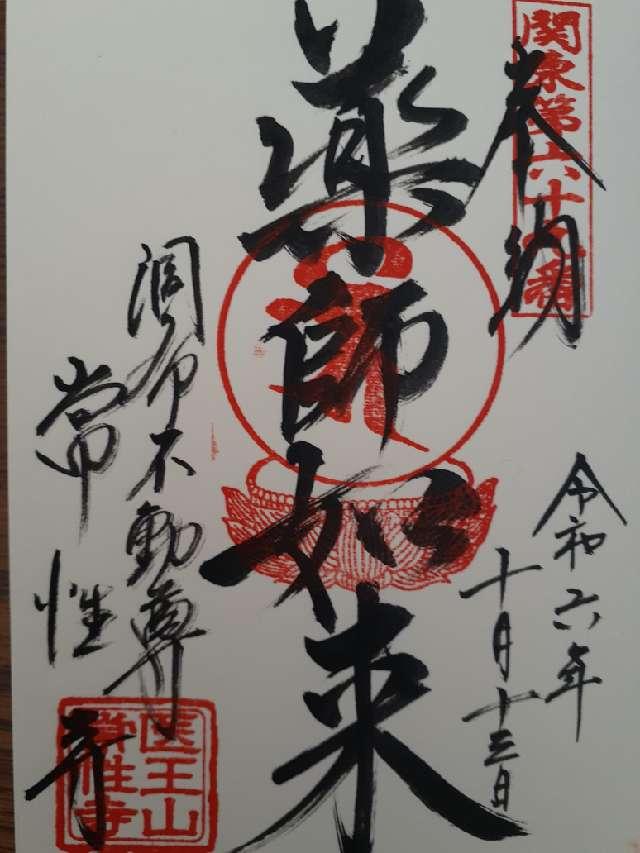 関東第六十六番
奉納
令和六年
十月十三日
薬師如来
調布不動尊
常性寺
医王山
常性寺